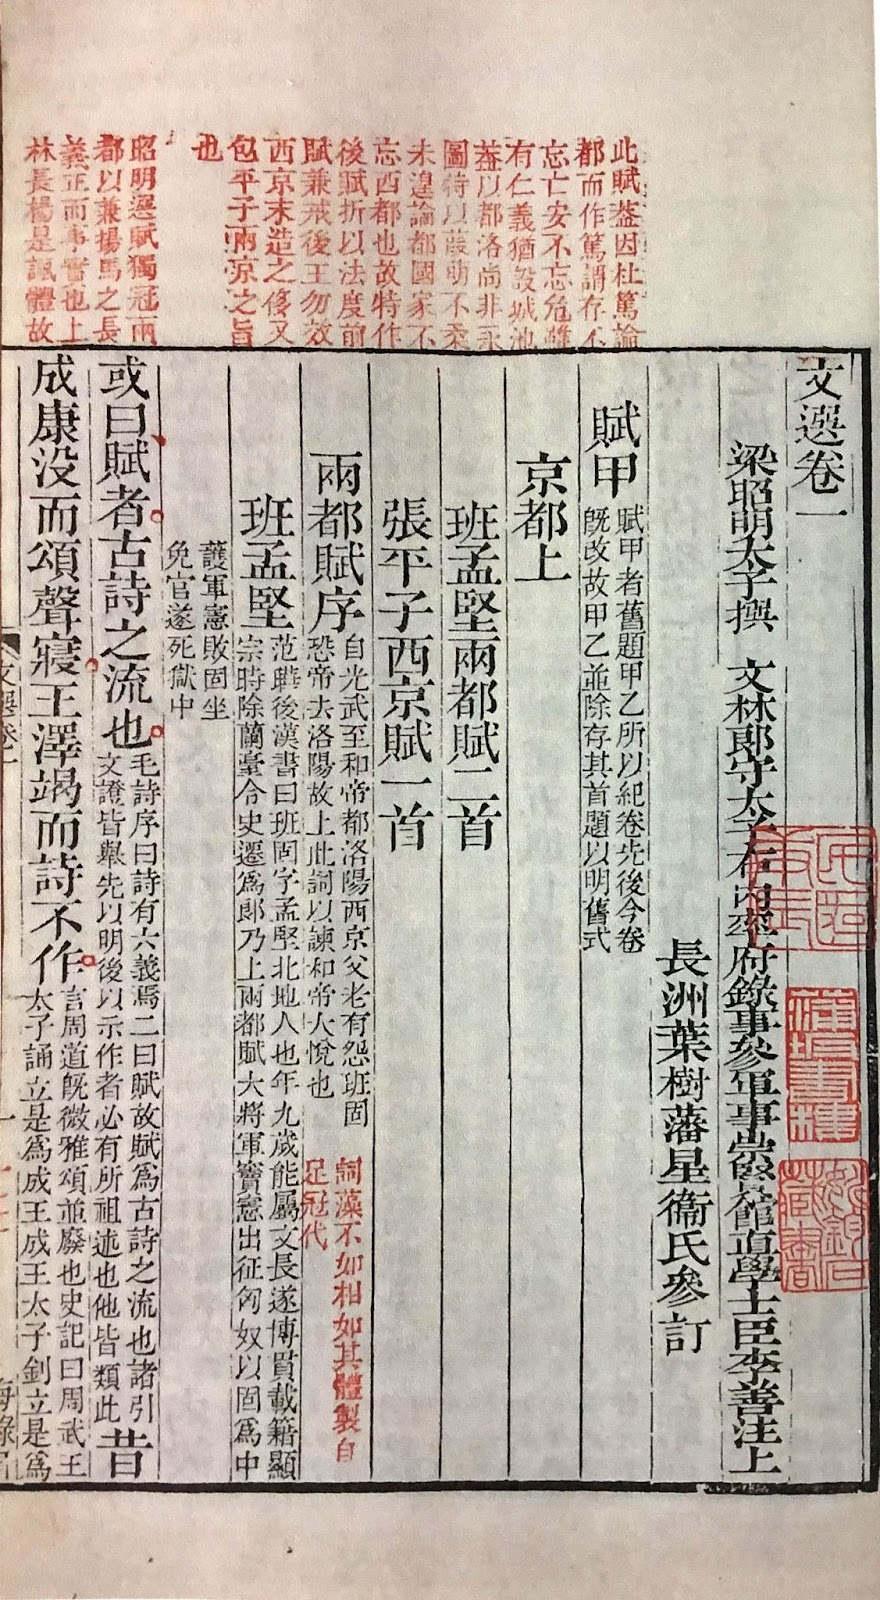 此賦蓋因杜篤論
都而作篤謂存不
忘亡安不忘危雖
有仁義猶設城池
蓋以都洛尚非永
圖特以葭萌不柔
未遑論都國家不
忘西都也故特作
後賦折以法度前
賦兼戒後王勿效
西京末造之侈又
包平子兩京之旨
也
昭明選賦獨冠兩
都以兼揚馬之長
義正而事實也上
林長楊是諷體故
文選卷一
梁昭明太子撰 文林郎守太子右內率府錄事參軍事崇賢館直學士臣李善注上
長洲葉樹藩星衞氏參訂
賦甲 賦甲者舊題甲乙所以紀卷先後今卷
旣改故甲乙並除存其首題以明舊式
京都上
班孟堅兩都賦二首
張平子西京賦一首
兩都賦序 自光武至和帝都洛陽西京父老有怨班固
恐帝去洛陽故上此詞以諫和帝大悅也
詞藻不如相如其體製自
足冠代
班孟堅 范曄後漢書曰班固字孟堅北地人也年九歲能屬文長遂博貫載籍顯
宗時除蘭臺令史遷爲郎乃上兩都賦大將軍竇憲出征匈奴以固爲中
護軍憲敗固坐
免官遂死獄中
或曰賦者古詩之流也 毛詩序曰詩有六義焉二曰賦故賦爲古詩之流也諸引
文證皆舉先以明後以示作者必有所祖述也他皆類此 昔
成康没而頌聲寢王澤竭而詩不作 言周道旣微雅頌並廢也史記曰周武王
太子誦立是爲成王成王太子釗立是爲
文選卷一